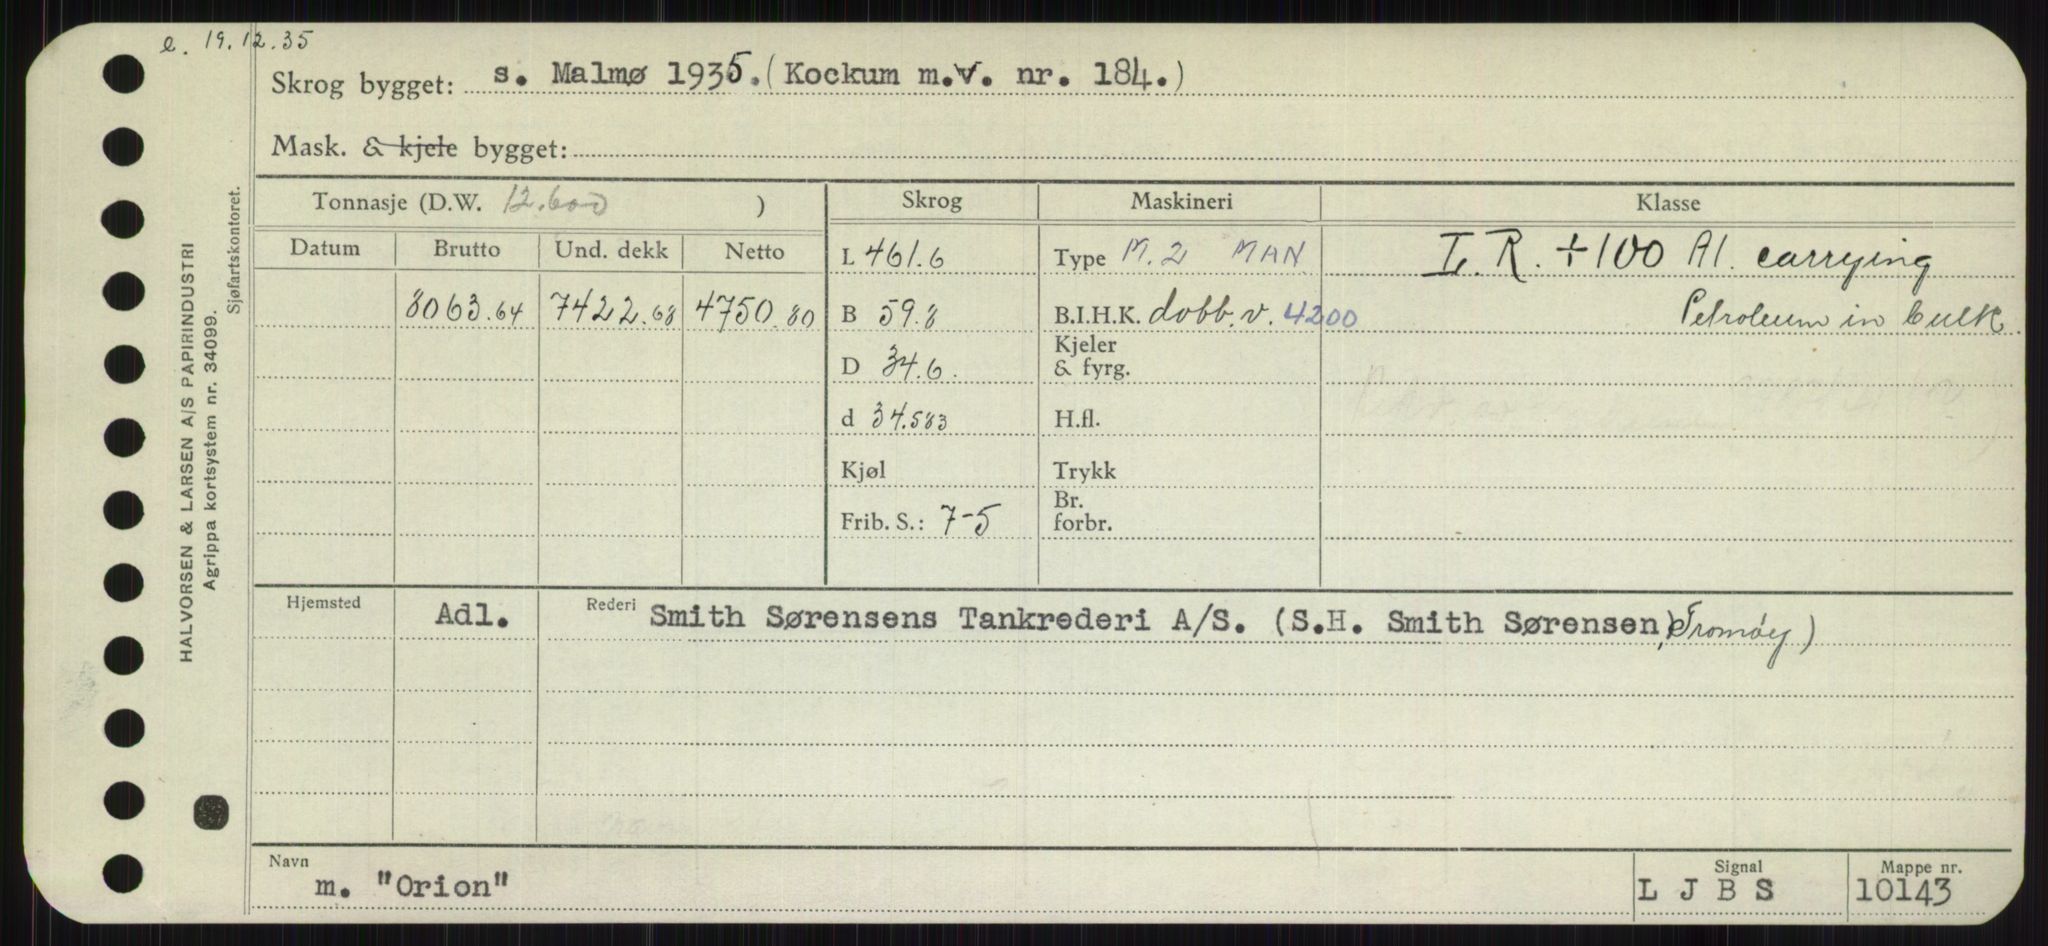 e. 19.12.35
Skrog bygget: s. Malmø 1935. (Kockum m.v. nr. 184.)
Mask. & kjele bygget:
HALVORSEN & LARSEN A/S PAPIRINDUSTRI
Agrippa kortsystem nr. 34099.
Sjøfartskontoret.
Tonnasje (D.W. 12.600 ) Skrog Maskineri Klasse
Datum Brutto Und. dekk Netto L 461.6 Type M. 2 MAN L.R. +100 A1. carrying
8063.64 7422.68 4750.80 B 59.8 B.I.H.K. dobb. v. 4200 Petroleum in bulk
D 34.6. Kjeler & fyrg.
d 34.583 H.fl.
Kjøl Trykk
Frib. S.: 7-5 Br. forbr.
Hjemsted Adl. Rederi Smith Sørensens Tankrederi A/S. (S.H. Smith Sørensen, Tromøy)
Navn Signal Mappe nr.
m. "Orion" L J B S 10143